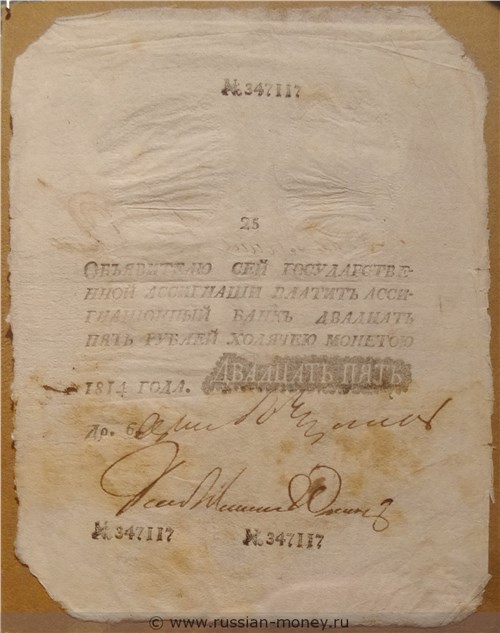 № 347117
25
ОБЪЯВИТЕЛЮ СЕЙ ГОСУДАРСТВЕ-
ННОЙ АССИГНАЦІИ ПЛАТИТЪ АССИ-
ГНАЦІОННЫЙ БАНКЪ ДВАДЦАТЬ
ПЯТЬ РУБЛЕЙ ХОДЯЧЕЮ МОНЕТОЮ
1814 ГОДА. ДВАДЦАТЬ ПЯТЬ
№ 347117 № 347117
© www.russian-money.ru